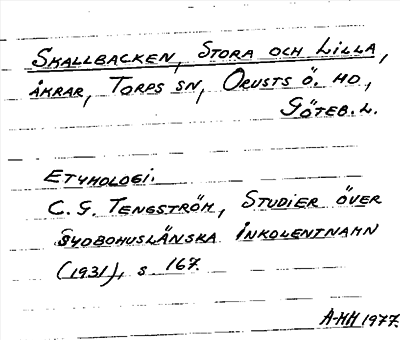 SKALLBACKEN, STORA OCH LILLA,
ÅKRAR, TORPS SN, ORUSTS Ö. HD,
GÖTEB. L.
ETYMOLOGI.
C. G. TENGSTRÖM, STUDIER ÖVER
SYDBOHUSLÄNSKA INKOLENTNAMN
(1931), s 167.
A-HH 1977.